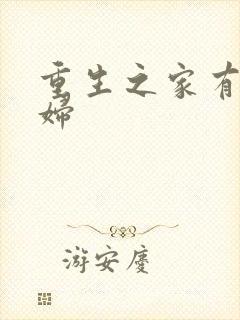 重生之家有
婦
游安慶